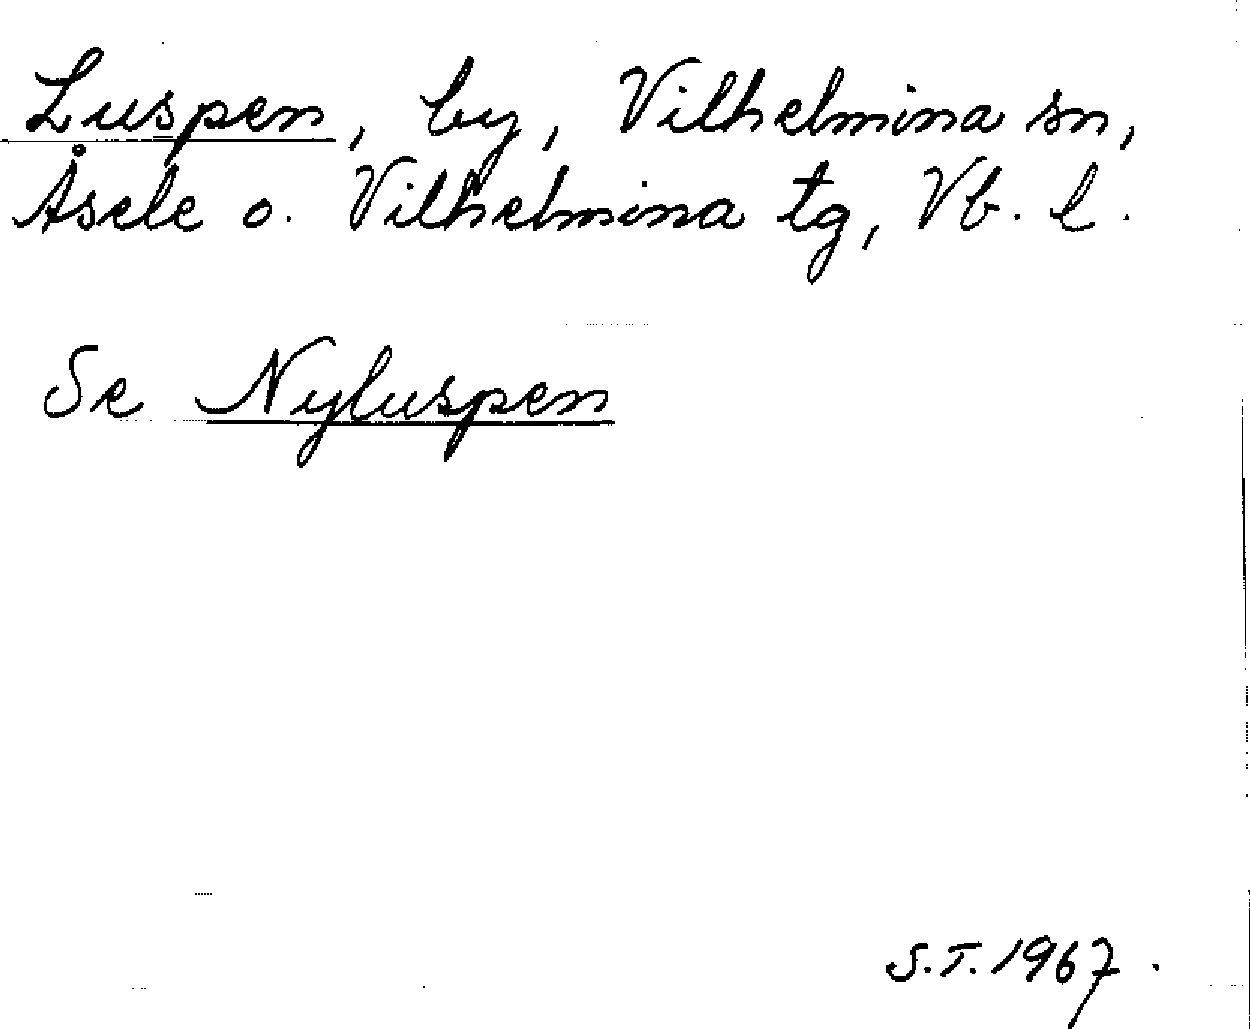 Luspen, by, Vilhelmina sn,
Åsele o. Vilhelmina tg, Vb. l.
Se Nyluspen
S.T. 1967.